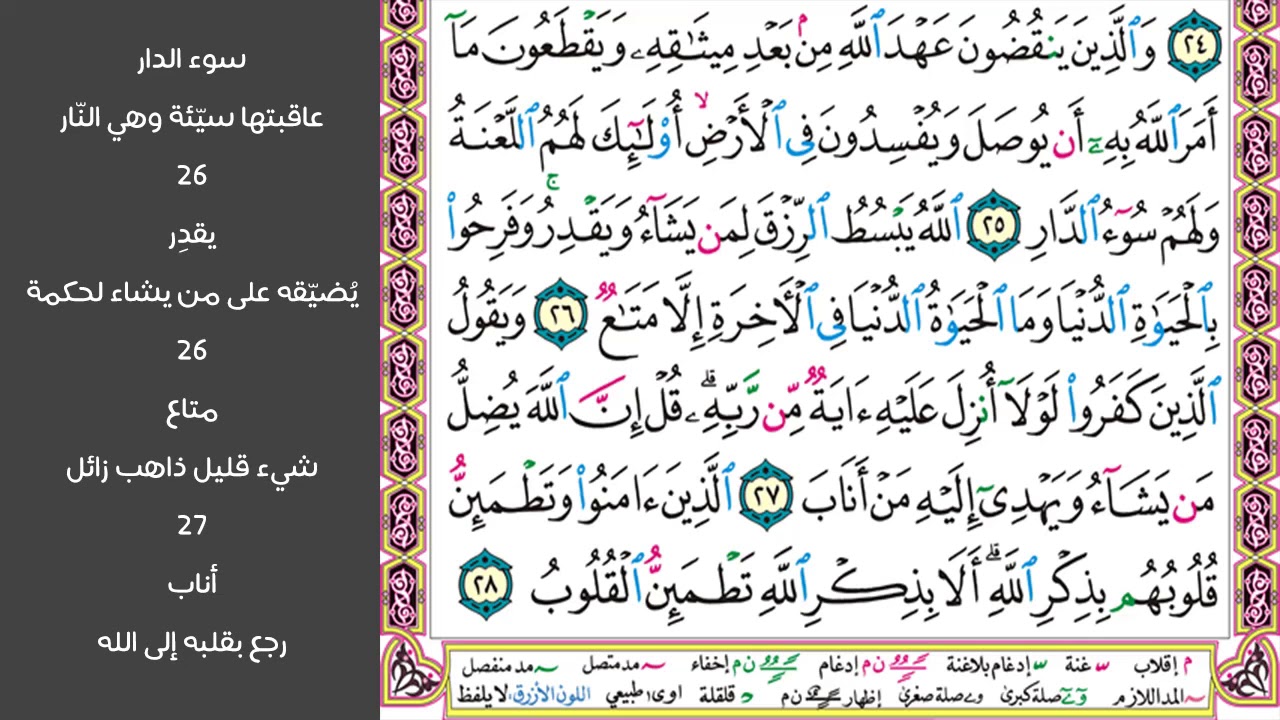 ٢٤ وَٱلَّذِينَ يَنقُضُونَ عَهْدَ ٱللَّهِ مِنۢ بَعْدِ مِيثَٰقِهِۦ وَيَقْطَعُونَ مَآ
أَمَرَ ٱللَّهُ بِهِۦٓ أَن يُوصَلَ وَيُفْسِدُونَ فِى ٱلْأَرْضِ ۙ أُو۟لَٰٓئِكَ لَهُمُ ٱللَّعْنَةُ
وَلَهُمْ سُوٓءُ ٱلدَّارِ ٢٥ ٱللَّهُ يَبْسُطُ ٱلرِّزْقَ لِمَن يَشَآءُ وَيَقْدِرُ ۚ وَفَرِحُوا۟
بِٱلْحَيَوٰةِ ٱلدُّنْيَا وَمَا ٱلْحَيَوٰةُ ٱلدُّنْيَا فِى ٱلْأَخِرَةِ إِلَّا مَتَٰعٌ ٢٦ وَيَقُولُ
ٱلَّذِينَ كَفَرُوا۟ لَوْلَآ أُنزِلَ عَلَيْهِ ءَايَةٌ مِّن رَّبِّهِۦ ۗ قُلْ إِنَّ ٱللَّهَ يُضِلُّ
مَن يَشَآءُ وَيَهْدِىٓ إِلَيْهِ مَنْ أَنَابَ ٢٧ ٱلَّذِينَ ءَامَنُوا۟ وَتَطْمَئِنُّ
قُلُوبُهُم بِذِكْرِ ٱللَّهِ ۗ أَلَا بِذِكْرِ ٱللَّهِ تَطْمَئِنُّ ٱلْقُلُوبُ ٢٨
م إقلاب س غنة س إدغام بلاغنة ن م إدغام ن م إخفاء مد متصل مد منفصل
المد اللازم صلة كبرى و ے صلة صغرى إظهار ن م قلقلة د اوى ا طبيعي اللون الأزرق: لا يلفظ
سوء الدار
عاقبتها سيّئة وهي النّار
26
يقدِر
يُضيّقه على من يشاء لحكمة
26
متاع
شيء قليل ذاهب زائل
27
أناب
رجع بقلبه إلى الله